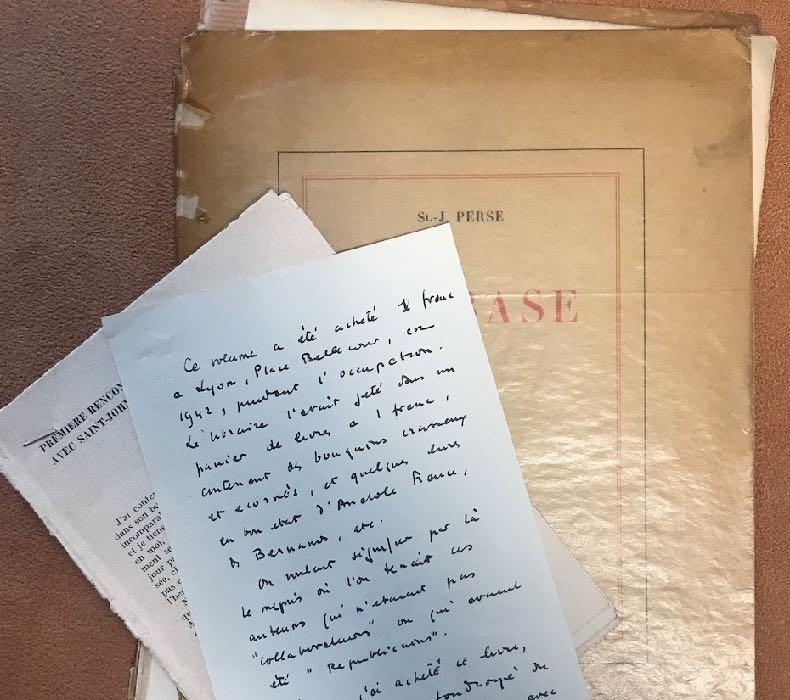 St.-J. PERSE
ASE
PREMIÈRE RENCON
AVEC SAINT-JOHN
J'ai
dans son
incompara
et je tiens
en moi,
ment
jour
sée,
pas
l'
Ce volume a été acheté 1 franc
a Lyon, Place Bellecour, en
1942, pendant l'occupation.
Le libraire l'avait jeté dans un
panier de livres a 1 franc,
contenant des bouquins
et écornés, et quelques livres
en bon état d'Anatole France,
Bernanos, etc.
On voulait signifier par là
le mépris où l'on tenait ces
auteurs qui n'étaient pas
"collaborateurs" ou qui avaient
été "Republicains".
j'ai acheté ce livre,
de
avec